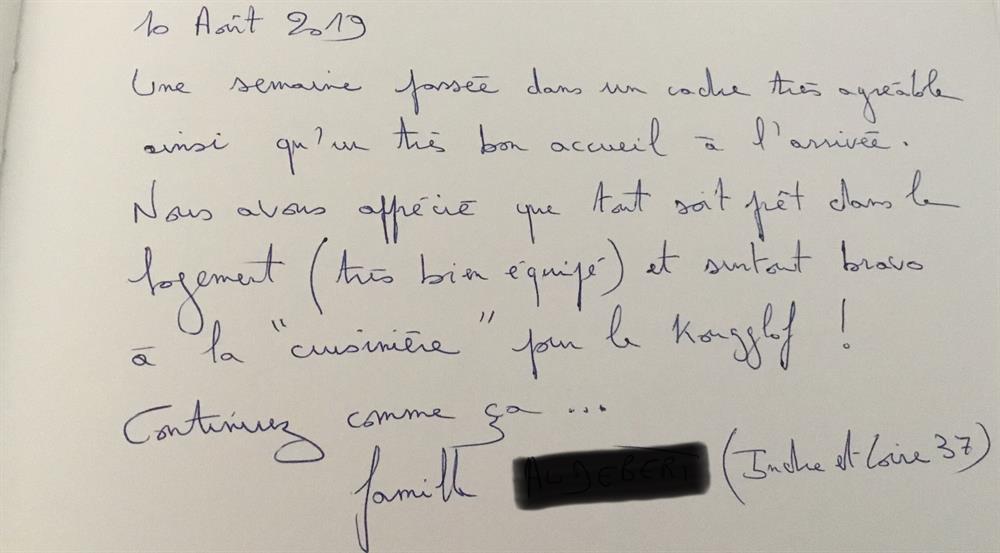 10 Août 2019
Une semaine passée dans un cadre très agréable
ainsi qu'un très bon accueil à l'arrivée.
Nous avons apprécié que tout soit prêt dans le
logement (très bien équipé) et surtout bravo
à la "cuisinière" pour le Kougglof !
Continuez comme ça ...
famille (Indre et Loire 37)